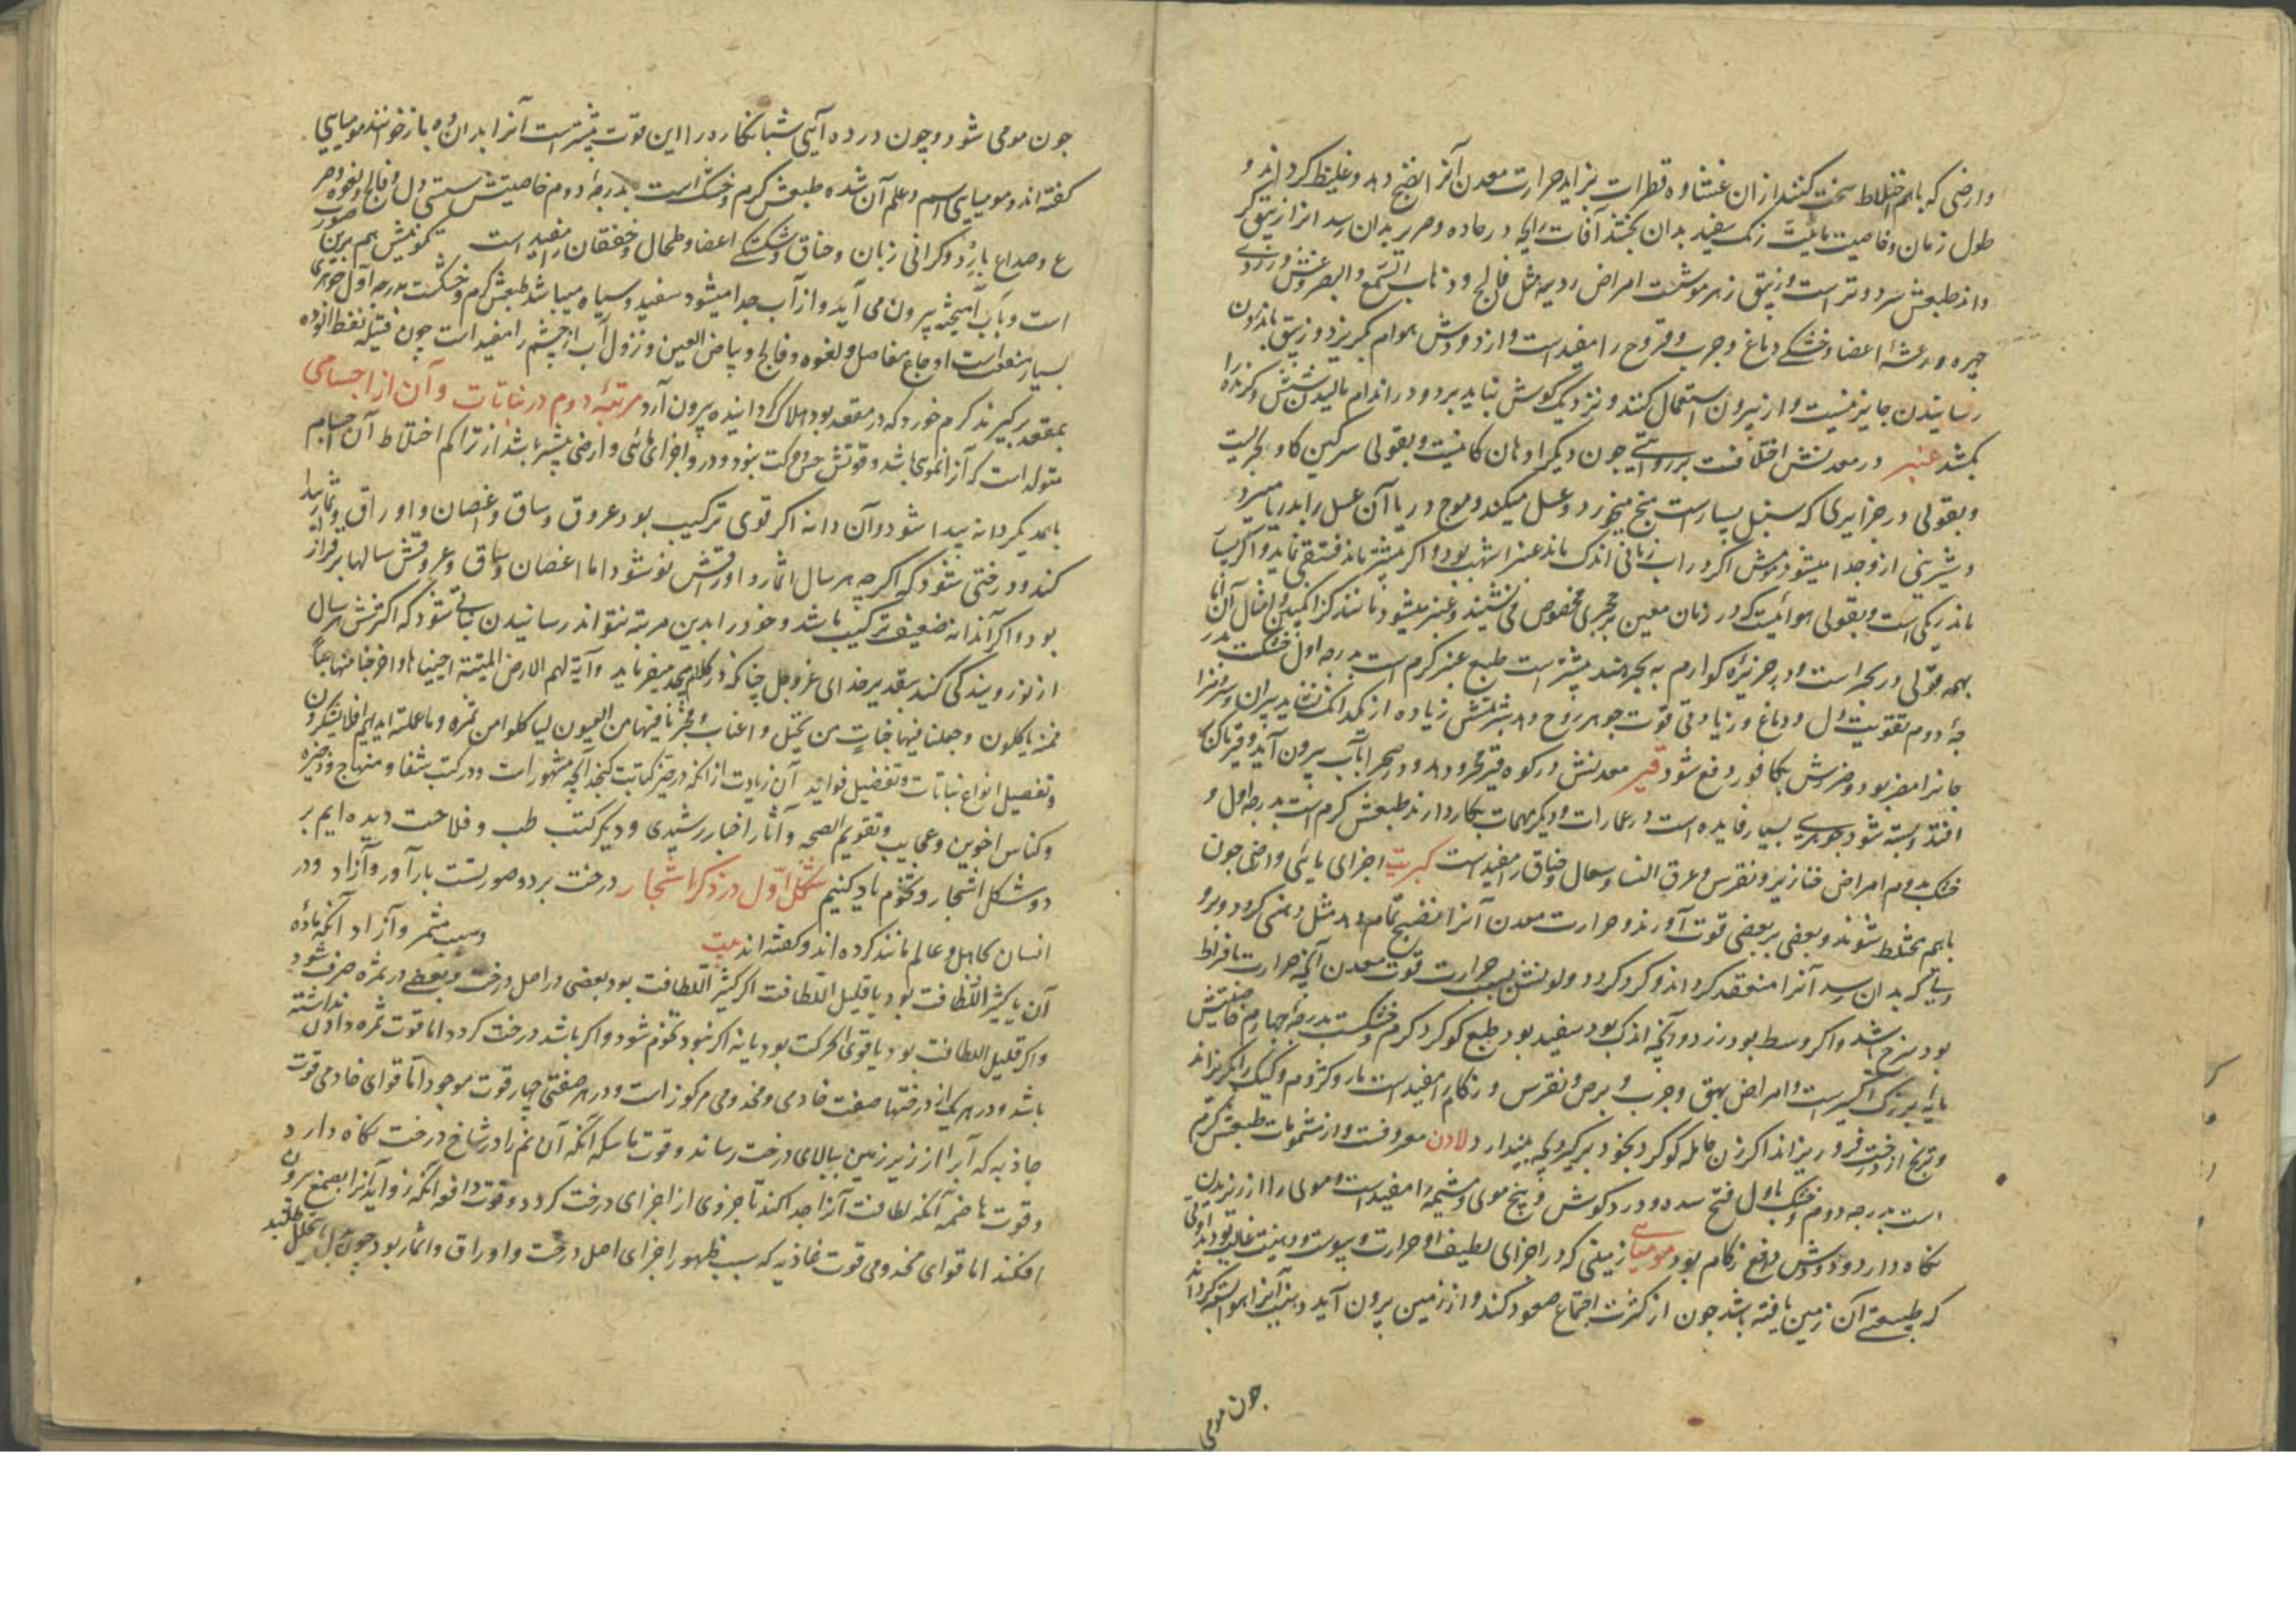 وارضی که باهم اختلاط سخت کنند از آن غشاوه قطرات بزاید حرارت معدن آنرا نضج دهد و غلیظ کرداند و
طول زمان و خاصیت مائیت رنک سفید بدان بخشد آفات رایحه در ماده و حریر بدان رسد انرا زیبق کر
داند طبعش سرد و تر است و زیبق زهر موشست امراض ردیه مثل فالج و ذهاب السمع والبصر و غش و زردی
چهره و رعشهٔ اعضا و خشکی دماغ و جرب و قروح را مفید است و از دودش هوام بکریزد و زیبق باندرون
رسانیدن جایز نیست و از بیرون استعمال کنند و نزدیک کوش نباید برد و در اندام مالیدن شپش و کزنده را
بکشد عنبر در معدنش اختلافست بروایتی چون دیکر ادهان کانیست و بقولی سرکین کاو بحریست
و بقولی در جزایری که سنبل بسیار است منج میخورد و عسل میکند و موج دریا آن عسل را بدریا میبرد
و شیرینی ازو جدا میشود مومش اکر در آب زمانی اندک ماند عنبر اشهب بود و اکر بیشتر ماند فستقی نماید و اکر بسیار
ماند زنکی است و بقولی هوائیست که در زمان معین بر حجری مخصوص می نشیند و عنبر میشود مانند کزانکبین و امثال آن اما
بهمه قولی در بحر است و در جزیرهٔ کوارم به بحر هند بیشتر است طبع عنبر کرم است بدرجه اول خشکست بدر
جهٔ دوم تقویت دل و دماغ و زیادتی قوت جوهر روح دهد شربتش زیاده از یکدانک نشاید پیران و سرد مزا
جانرا مفید بود و ضررش بکافور دفع شود قیر معدنش در کوه قیر بحرود و در صحرا باآب بیرون آید و قیرناک
افتد و بسته شود جوهری بسیار فایده است در عمارات و دیکر مهمات بکار دارند طبعش کرم است بدرجه اول و
خشک بدوم امراض خنازیر و نقرس و عرق النسا و سعال و خناق را مفید است کبریت اجزای مایی و ارضی چون
باهم مختلط شوند و بعضی بر بعضی قوت آورند و حرارت معدن آنرا نضیج تمام دهد مثل دهنی کردد و برو
دتی که بدان رسد آنرا منعقد کرداند و کوکرد کردد و لونش بسبب حرارت قوت معدن آنچه حرارت بافراط
بود سرخ باشد و اکر وسط بود زرد و آنچه اندک بود سفید بود طبع کوکرد کرم و خشکست بدرجهٔ چهارم خاصیتش
پایهٔ بزرک اکسیر است و امراض بهق و جرب و برص و نقرس و زکام را مفید است مار و کژدم و کیک را بکریزاند
و ترنج از درخت فرو ریزاند اکر زن حامله کوکرد بخود برکیرد بچه بیندازد لادن معروفست و از مشمومات طبعش کرم
است بدرجه دوم و خشک باول فتح سده و درد کوش و بیخ موی و مشیمه را مفید است و موی را از ریزیدن
نکاه دارد و دودش دافع زکام بود مومیایی زمینی که در اجزای لطیف او حرارت و یبوست و دهنیت غالب بود
که طبیعت آن زمین یافته باشد چون از کثرت اجتماع صعود کند و از زمین بیرون آید دهنیت آنرا هوا بسته کرداند
چون مومی
جون مومی شود و چون در ده آیی شبانکاره را این قوت بیشتر است آنرا بدان ده باز خوانند مومیایی
کفته اند و مومیایی اسم و علم آن شده طبعش کرم و خشک است بدرجهٔ دوم خاصیتش سستی دل و فالج و لقوه و صر
ع و صداع بارد و کرانی زبان و خناق و شکستکی اعضا و طحال و خفقان را مفید است تکونیش هم برین صورت
است و باآب آمیخته بیرون می آید و از آب جدا میشود سفید و سیاه میباشد طبعش کرم و خشکست بدرجه اول جوهری
بسیار منفعت است اوجاع مفاصل و لقوه و فالج و بیاض العین و نزول آب از چشم را مفید است چون فتیله نفط اندوده
بمقعد برکیرند کرم خورد که در مقعد بود هلاک کردانیده بیرون آرد مرتبهٔ دوم در نباتات و آن از اجسامی
متولد است که آنرا نموی باشد و قوتش حس و حرکت نبود و درو اجزای مائی و ارضی بیشتر باشد از تراکم اختلاط آن اجسام
باهمدیکر دانه پیدا شود و آن دانه اکر قوی ترکیب بود عروق و ساق و اغصان و اوراق و ثمار پیدا
کند و درختی شود که اکرچه هر سال اثمار و اوراقش نو شود اما اغصان و ساق و عروقش سالها برقرار
بود و اکر آن دانه ضعیف ترکیب باشد و خود را بدین مرتبه نتواند رسانیدن نباتی شود که اکثرش هر سال
از نو رویندکی کند بتقدیر خدای عز و جل چنانکه در کلام مجید میفرماید و آیة لهم الارض المیتة احییناها و اخرجنا منها حباً
فمنه یاکلون و جعلنا فیها جنات من نخیل و اعناب و فجرنا فیها من العیون لیاکلوا من ثمره و ما عملته ایدیهم افلا یشکرون
و تفصیل انواع نباتات و تفضیل فواید آن زیادت از آنکه در حیز کتابت کنجد آنچه مشهور است و در کتب شفا و منهاج و ذخیره
و کناس اخوین و عجایب و تقویم الصحه و آثار اخبار رشیدی و دیکر کتب طب و فلاحت دیده ایم بر
دو شکل اشجار و نجوم یاد کنیم شکل اول در ذکر اشجار درخت بر دو صورتست بارآور و آزاد و در
انسان کامل و عالم مانند کرده اند و کفته اند بیت و سبب مثمر و آزاد آنکه مادهٔ
آن یا کثیر اللطافت بود یا قلیل اللطافت اکر کثیر اللطافت بود بعضی در اصل درخت و بعضی در ثمره صرف شود
و اکر قلیل اللطافت بود یا قوی الحرکت بود یا نه اکر نبود نجوم شود و اکر باشد درخت کردد اما قوت ثمره دادن نداشته
باشد و در هر یک از درختها صفت خادمی و مخدومی مرکوز است و در هر صفتی چهار قوت موجود اما قوای خادمی قوت
جاذبه که آبرا از زیر زمین ببالای درخت رساند و قوت ماسکه آنکه آن نم را در شاخ درخت نکاه دارد
و قوت هاضمه آنکه لطافت آنرا جدا کند تا جزوی از اجزای درخت کردد و قوت دافعه آنکه زواید آنرا بصمغ بیرون
افکند اما قوای مخدومی قوت غاذیه که سبب ظهور اجزای اصل درخت و اوراق و اثمار بود چون بدل ما یتحلل طلبد